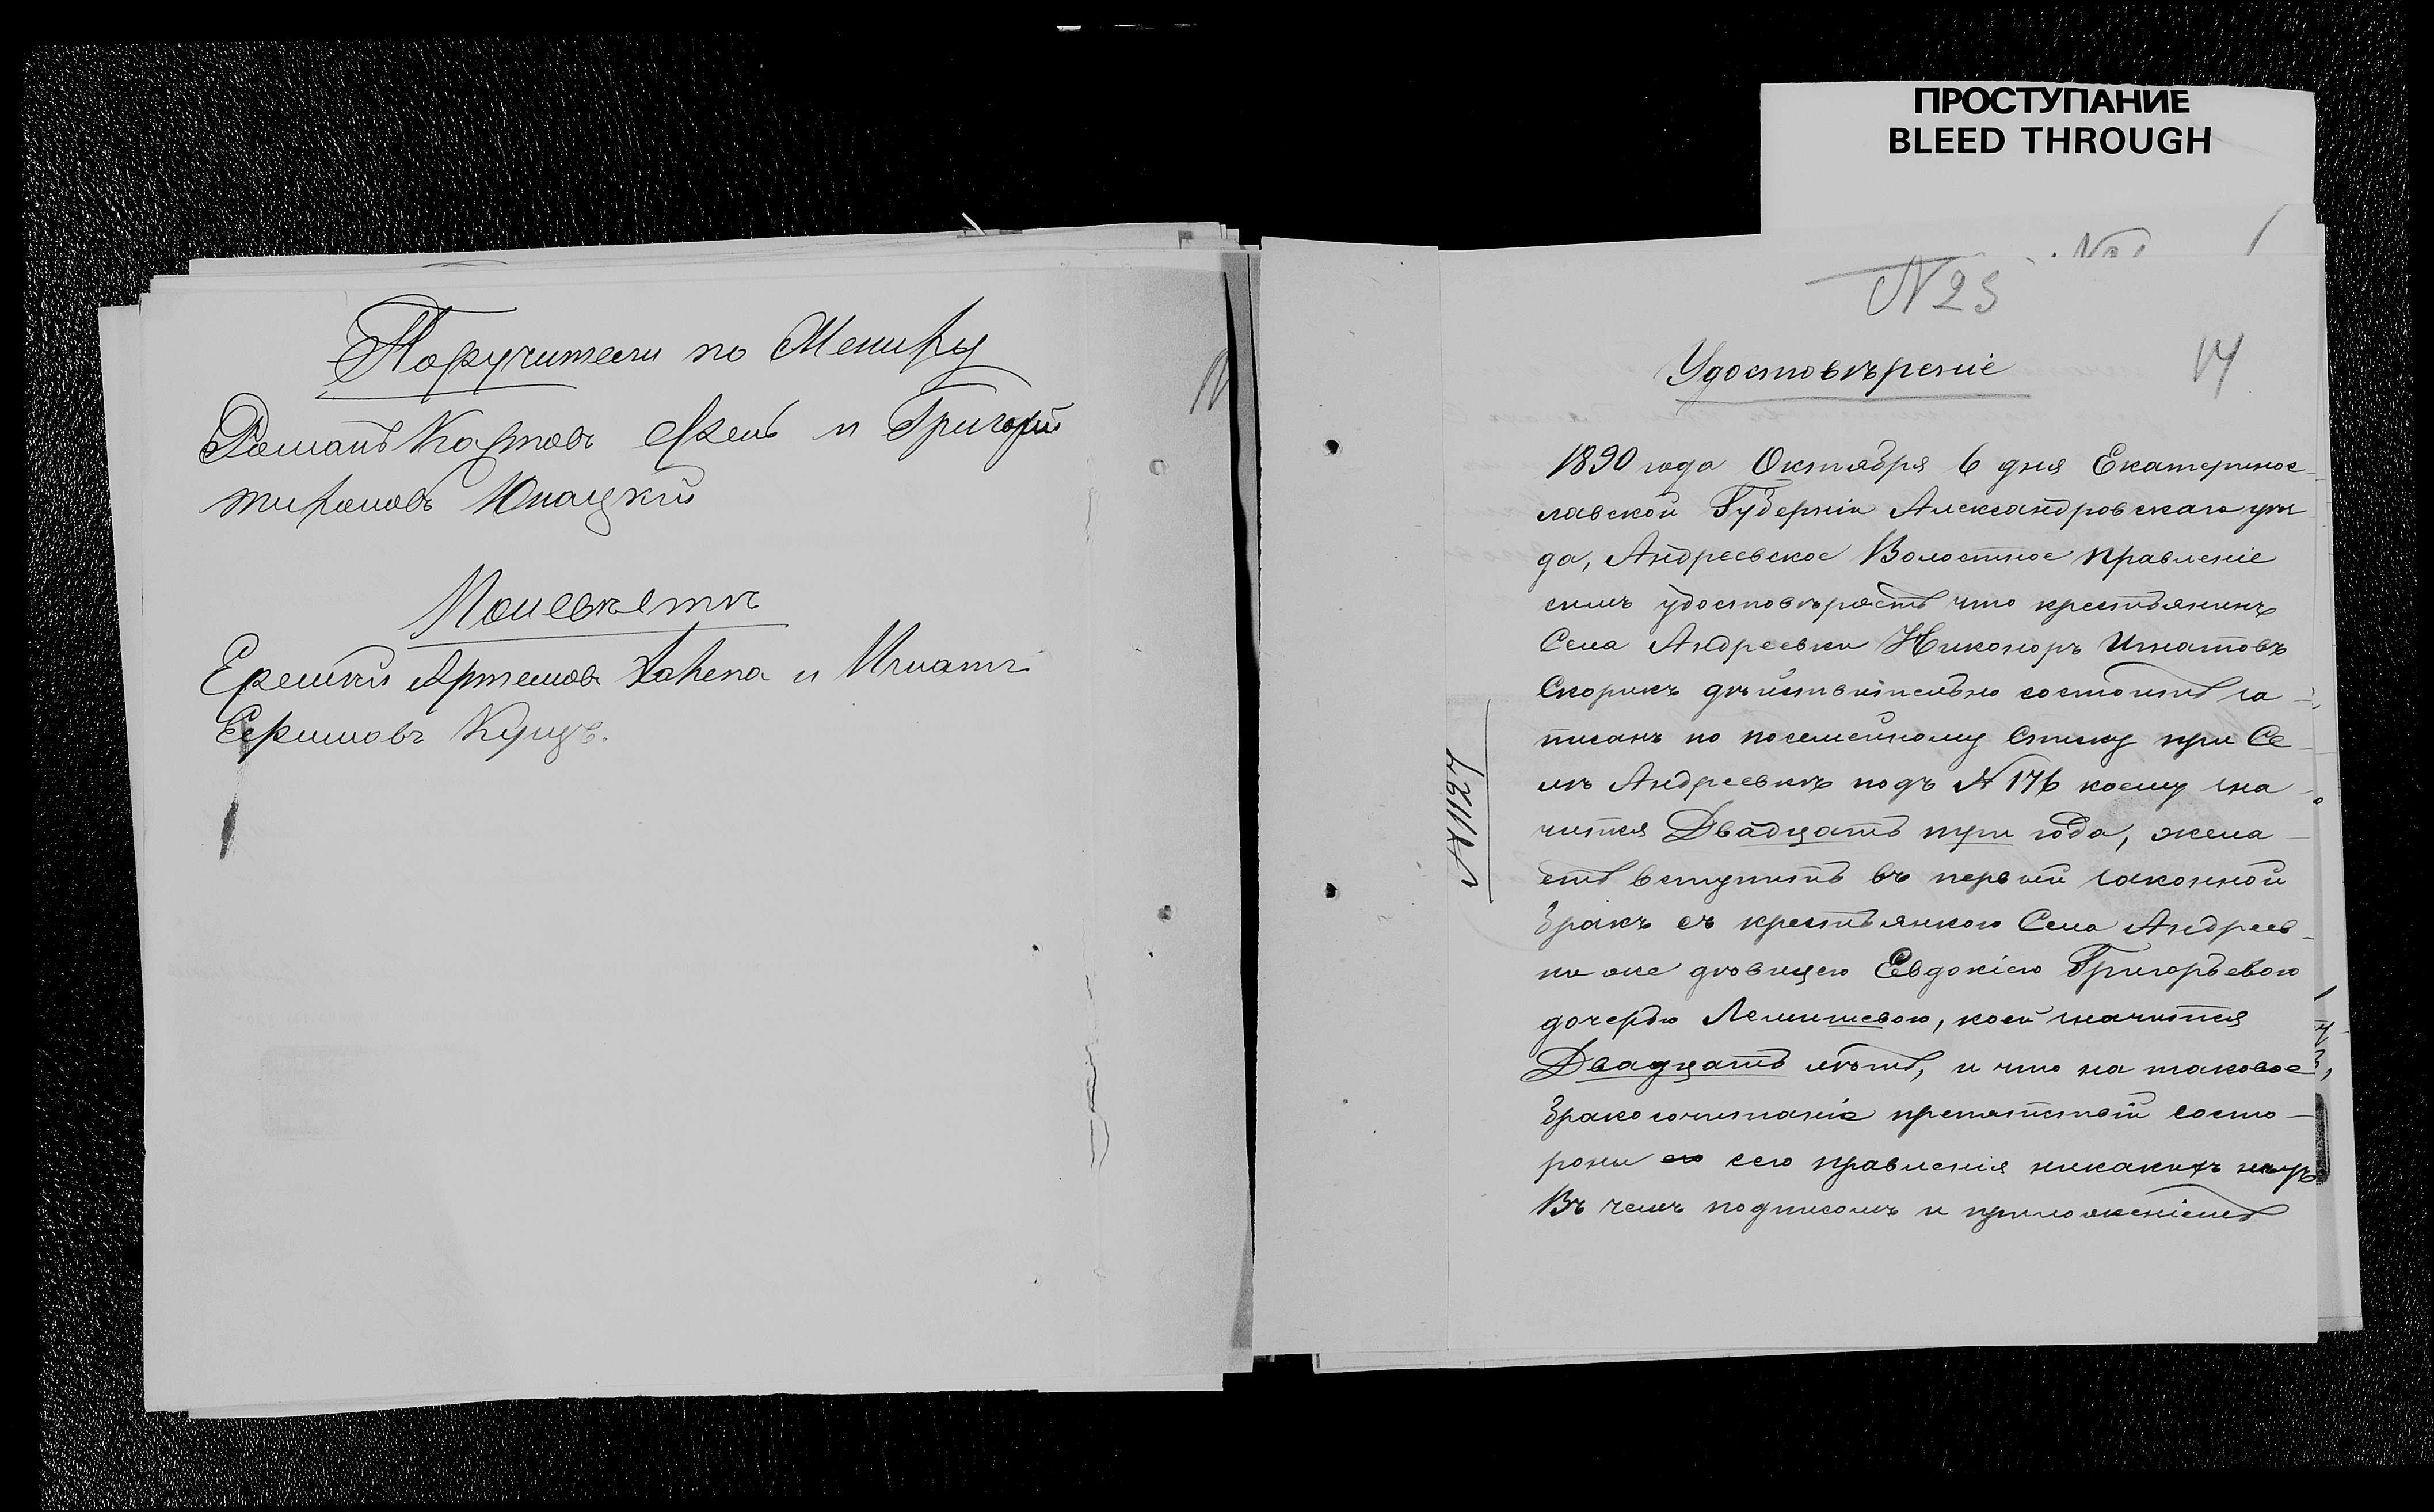 ПРОСТУПАНИЕ
BLEED THROUGH
Поручители по Жениху
Романъ и Григорій
Юнацкій
По невѣстѣ
Еремѣй Артемовъ и Игнатъ
Ефимовъ Куцъ.
N 25
14
Удостовѣреніе
N 1127
1890 года Октября 6 дня Екатеринос-
лавской Губерніи Александровскаго уѣз
да, Андреевское Волостное Правленіе
симъ удостовѣряетъ что крестьянинъ
Села Андреевки Никоноръ Игнатовъ
Скорикъ дѣйствительно состоитъ за-
писанъ по посемейному Списку при Се-
лѣ Андреевкѣ подъ N 176 коему зна-
чится Двадцать три года, жела-
етъ вступить въ первый законной
бракъ съ крестьянкою Села Андреев-
ки же дѣвицею Евдокіею Григорьевою
дочерью Лемишевою, коей значится
Двадцать лѣтъ, и что на таковое
бракосочитаніе препятствій состо-
роны его сего правленія никакихъ нѣтъ
Въ чемъ подписомъ и приложеніемъ